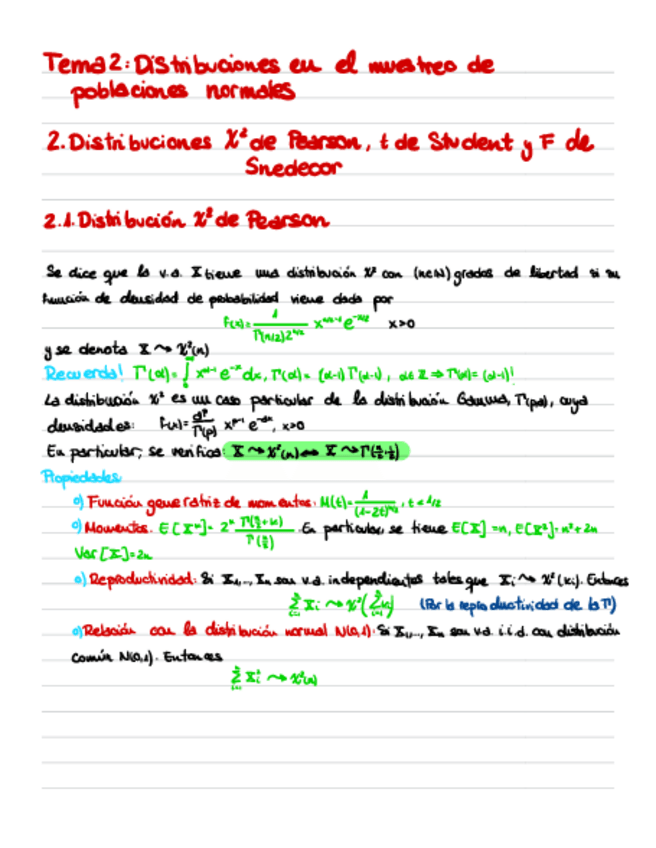 Tema 2: Distribuciones en el muestreo de
poblaciones normales
2. Distribuciones χ² de Pearson, t de Student y F de
Snedecor
2.1. Distribución χ² de Pearson
Se dice que la v.a. X tiene una distribución χ² con (n∈N) grados de libertad si su
función de densidad de probabilidad viene dada por
f(x) = 1 / (Γ(n/2) 2^(n/2)) x^(n/2-1) e^(-x/2) x>0
y se denota X ⇝ χ²(n)
Recuerda! Γ(α) = ∫₀^∞ x^(α-1) e^(-x) dx, Γ(α) = (α-1) Γ(α-1), α∈Z ⇒ Γ(α) = (α-1)!
La distribución χ² es un caso particular de la distribución Gamma, Γ(p,a), cuya
densidad es: f(x) = a^p / Γ(p) x^(p-1) e^(-ax), x>0
En particular, se verifica: X ⇝ χ²(n) ⇔ X ⇝ Γ(n/2, 1/2)
Propiedades
o) Función generatriz de momentos: M(t) = 1 / (1-2t)^(n/2), t < 1/2
o) Momentos. E[X^k] = 2^k Γ(n/2+k) / Γ(n/2). En particular, se tiene E[X] = n, E[X²] = n²+2n
Var[X] = 2n
o) Reproductividad: Si X₁,..., Xₙ son v.a. independientes tales que Xᵢ ⇝ χ²(kᵢ). Entonces
∑ᵢ₌₁ⁿ Xᵢ ⇝ χ²(∑ᵢ₌₁ⁿ kᵢ) (Por la reproductividad de la Γ)
o) Relación con la distribución normal N(0,1). Si X₁,..., Xₙ son v.a. i.i.d. con distribución
común N(0,1). Entonces
∑ᵢ₌₁ⁿ Xᵢ² ⇝ χ²(n)